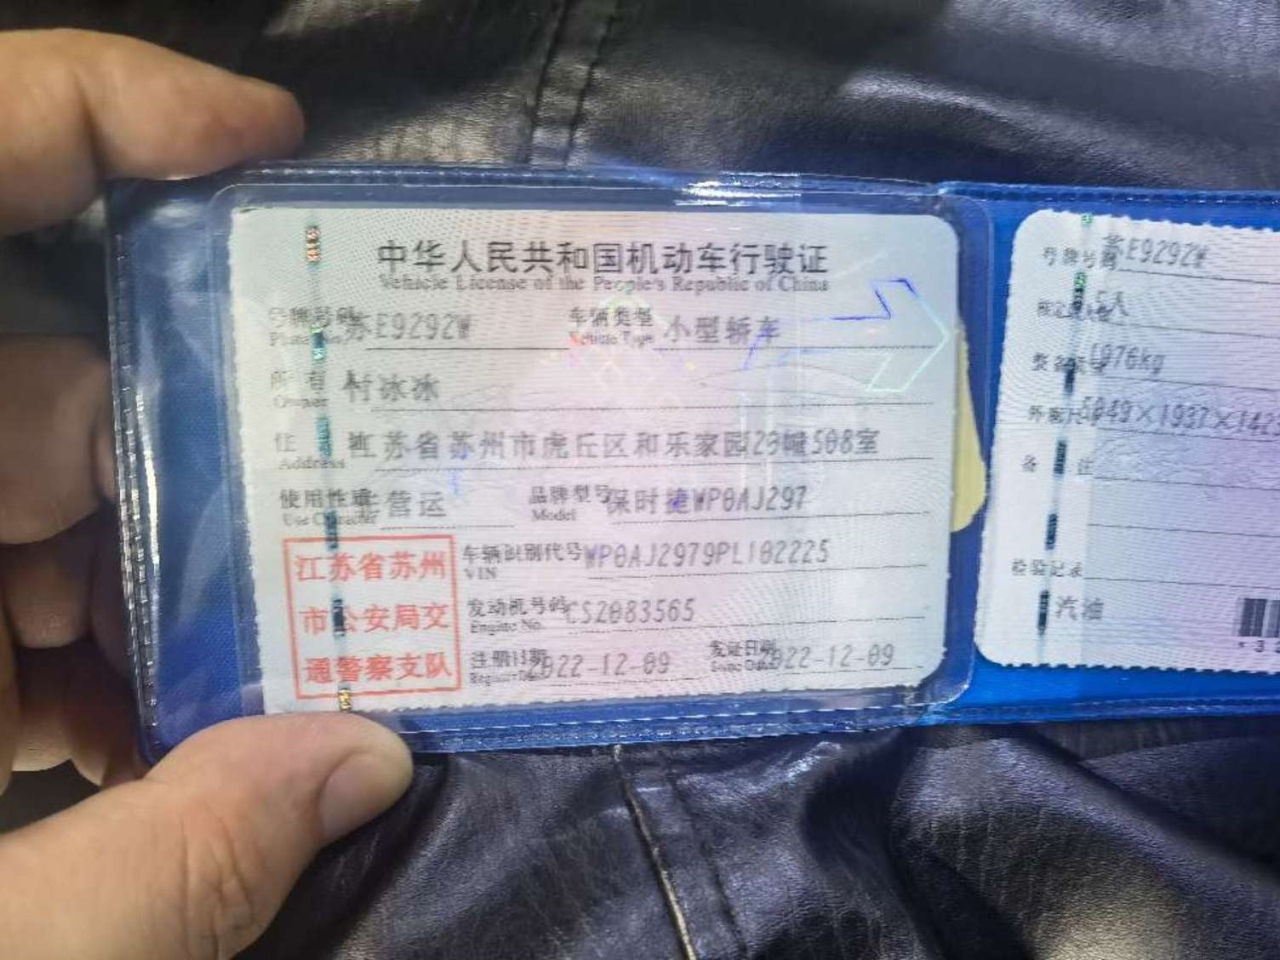 中华人民共和国机动车行驶证
Vehicle License of the People's Republic of China
号牌号码 苏E9292W 车辆类型 小型轿车
Plate No. Vehicle Type
所有人 付冰冰
Owner
住址 江苏省苏州市虎丘区和乐家园20幢508室
Address
使用性质 非营运 品牌型号 保时捷WP0AJ297
Use Character Model
车辆识别代号 WP0AJ2979PL102225
VIN
发动机号码 CS2083565
Engine No.
注册日期 2022-12-09 发证日期 2022-12-09
Register Date Issue Date
江苏省苏州
市公安局交
通警察支队
号牌号码 苏E9292W
5人
整备质量 1976kg
外廓尺寸 5049×1937×142
备注
检验记录
汽油